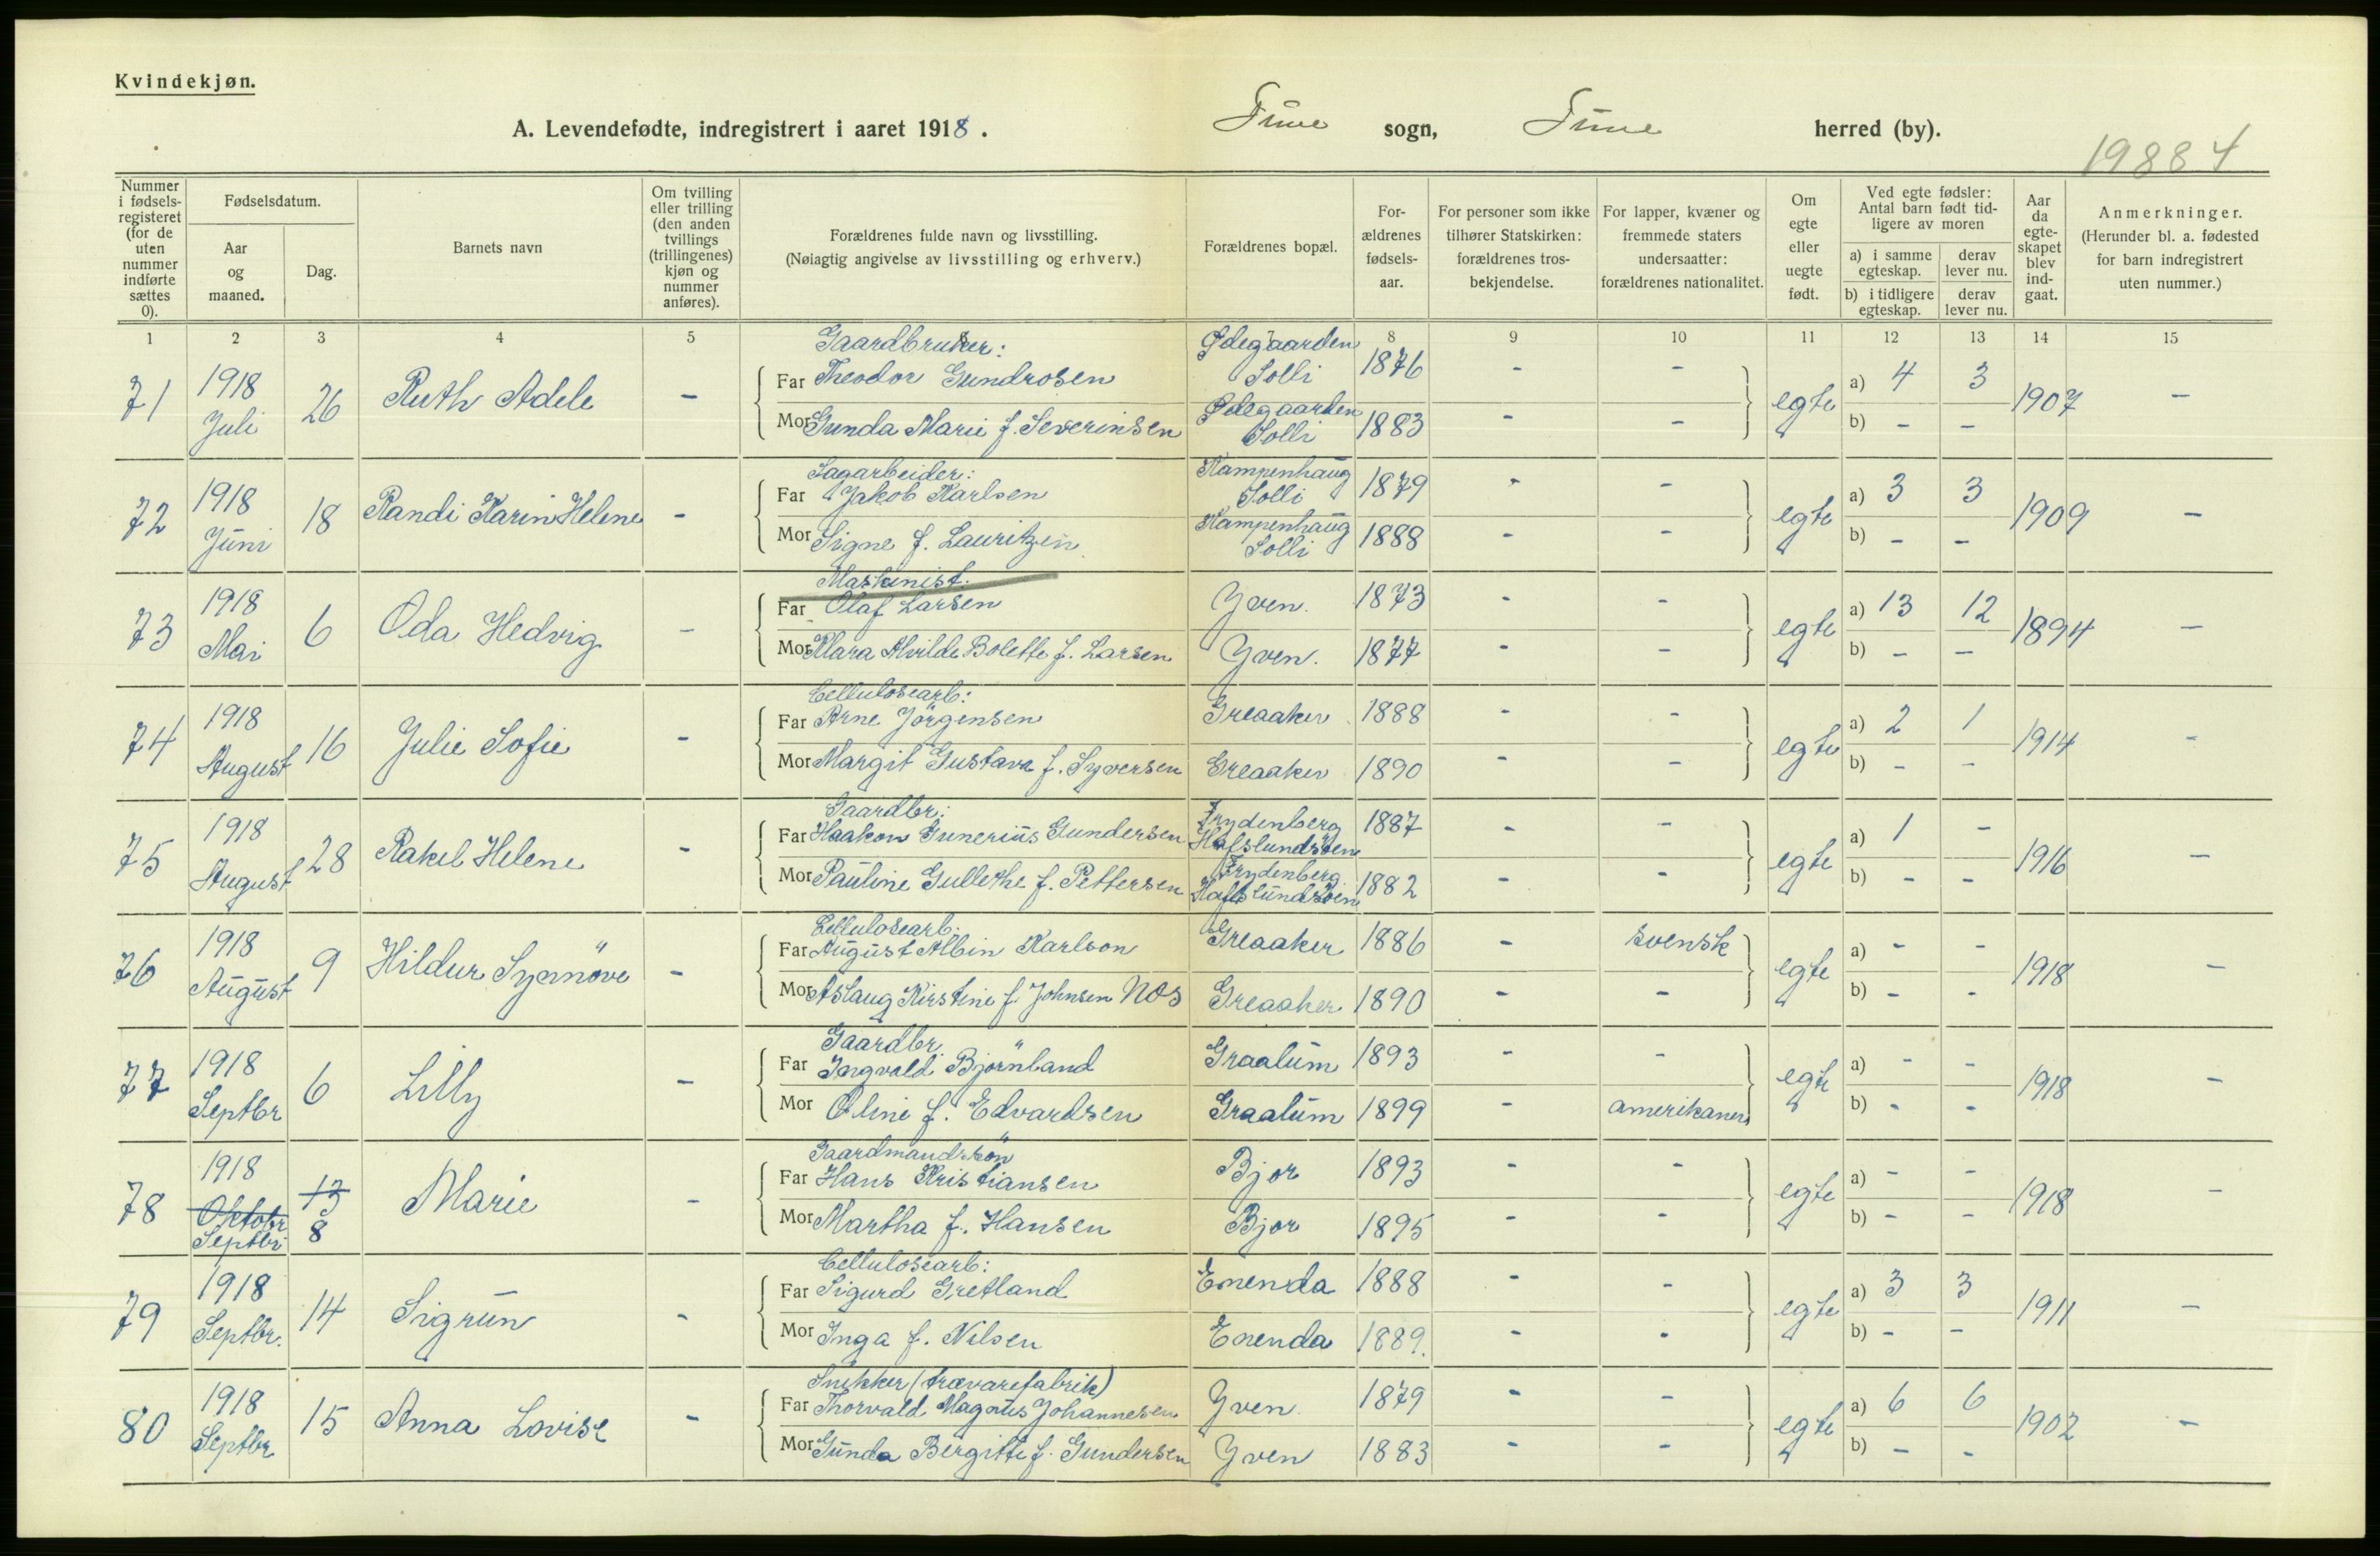 Kvindekjøn.
A. Levendefødte, indregistrert i aaret 1918. Tune sogn, Tune herred (by).
19884
Nummer i fødselsregisteret (for de uten nummer indførte sættes 0).
Fødselsdatum.
Aar og maaned.
Dag.
Barnets navn
Om tvilling eller trilling (den anden tvillings (trillingenes) kjøn og nummer anføres).
Forældrenes fulde navn og livsstilling.
(Nøiagtig angivelse av livsstilling og erhverv.)
Forældrenes bopæl.
Forældrenes fødselsaar.
For personer som ikke tilhører Statskirken: forældrenes trosbekjendelse.
For lapper, kvæner og fremmede staters undersaatter: forældrenes nationalitet.
Om egte eller uegte født.
Ved egte fødsler: Antal barn født tidligere av moren
a) i samme egteskap. derav lever nu.
b) i tidligere egteskap. derav lever nu.
Aar da egteskapet blev indgaat.
Anmerkninger.
(Herunder bl. a. fødested for barn indregistrert uten nummer.)
1 2 3 4 5 8 9 10 11 12 13 14 15
Gaardbruker: Ødegaarden
71 1918 Juli 26 Ruth Adele - Far Theodor Gundrosen Solli 1876 - - egte a) 4 3 1907 -
Mor Gunda Marie f. Severinsen Ødegaarden Solli 1883 - - b) - -
Sagarbeider: Kampenhaug
72 1918 Juni 18 Randi Karin Helene - Far Jakob Karlsen Solli 1879 - - egte a) 3 3 1909 -
Mor Signe f. Lauritzen Kampenhaug Solli 1888 - - b) - -
Maskinist.
73 1918 Mai 6 Oda Hedvig - Far Olaf Larsen Yven. 1873 - - egte a) 13 12 1894 -
Mor Klara Alvilde Bolette f. Larsen Yven. 1877 - - b) - -
Cellulosearb:
74 1918 August 16 Julie Sofie - Far Arne Jörgensen Greaaker 1888 - - egte a) 2 1 1914 -
Mor Margit Gustava f. Syversen Greaaker 1890 - - b) - -
Gaardbr: Frydenberg
75 1918 August 28 Rakel Helene - Far Haakon Gunerius Gundersen Hafslundsöen 1887 - - egte a) 1 - 1916 -
Mor Pauline Gullethe f. Pettersen Frydenberg Hafslundsöen 1882 - - b) - -
Cellulosearb.
76 1918 August 9 Hildur Synnöve - Far August Albin Karlson Greaaker 1886 - svensk egte a) - - 1918 -
Mor Aslaug Kirstine f. Johnsen Nos Greaaker 1890 - - b) - -
Gaardbr.
77 1918 Septbr 6 Lilly - Far Ingvald Björnland Graalum 1893 - - egte a) - - 1918 -
Mor Oline f. Edvardsen Graalum 1899 - amerikaner b) - -
Gaardmandssön
78 1918 Oktobr Septbr 13 8 Marie - Far Hans Kristiansen Bjor 1893 - - egte a) - - 1918 -
Mor Martha f. Hansen Bjor 1895 - - b) - -
Cellulosearb:
79 1918 Septbr. 14 Sigrun - Far Sigurd Gretland Enenda 1888 - - egte a) 3 3 1911 -
Mor Inga f. Nilsen Enenda 1889. - - b) - -
Snekker (trævarefabrik)
80 1918 Septbr 15 Anna Lovise - Far Thorvald Magnus Johannesen Yven. 1879 - - egte a) 6 6 1902 -
Mor Gunda Bergitte f. Gundersen Yven 1883 - - b) - -